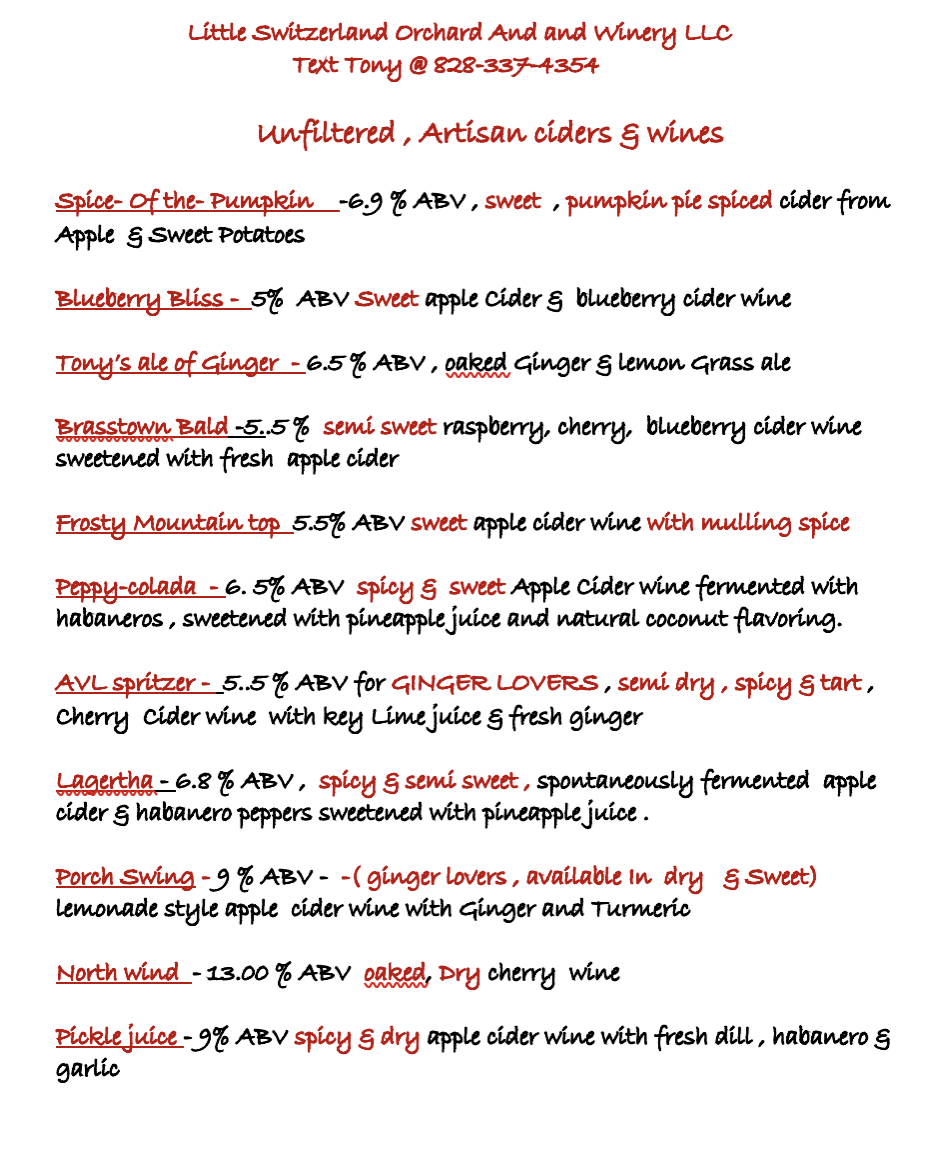 Little Switzerland Orchard And and Winery LLC
Text Tony @ 828-337-4354
Unfiltered , Artisan ciders & wines
Spice- Of the- Pumpkin -6.9 % ABV , sweet , pumpkin pie spiced cider from
Apple & Sweet Potatoes
Blueberry Bliss - 5% ABV Sweet apple Cider & blueberry cider wine
Tony's ale of Ginger - 6.5 % ABV , oaked Ginger & lemon Grass ale
Brasstown Bald -5..5 % semi sweet raspberry, cherry, blueberry cider wine
sweetened with fresh apple cider
Frosty Mountain top 5.5% ABV sweet apple cider wine with mulling spice
Peppy-colada - 6. 5% ABV spicy & sweet Apple Cider wine fermented with
habaneros , sweetened with pineapple juice and natural coconut flavoring.
AVL spritzer - 5..5 % ABV for GINGER LOVERS , semi dry , spicy & tart ,
Cherry Cider wine with key Lime juice & fresh ginger
Lagertha - 6.8 % ABV , spicy & semi sweet , spontaneously fermented apple
cider & habanero peppers sweetened with pineapple juice .
Porch Swing - 9 % ABV - -( ginger lovers , available In dry & Sweet)
lemonade style apple cider wine with Ginger and Turmeric
North wind - 13.00 % ABV oaked, Dry cherry wine
Pickle juice - 9% ABV spicy & dry apple cider wine with fresh dill , habanero &
garlic